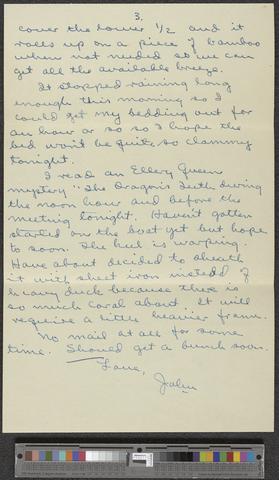 3.
cover the lower 1/2 and it
rolls up on a piece of bamboo
when not needed so we can
get all the available breeze.
It stopped raining long
enough this morning so I
could get my bedding out for
an hour or so so I hope the
bed won't be quite so clammy
tonight.
I read an Ellery Queen
mystery "The Dragon's Teeth during
the noon hour and before the
meeting tonight. Haven't gotten
started on the boat yet but hope
to soon. The keel is warping.
Have about decided to sheath
it with sheet iron instead of
heavy duck because there is
so much coral about. It will
require a little heavier frame.
No mail at all for some
time. Should get a bunch soon.
Love,
John